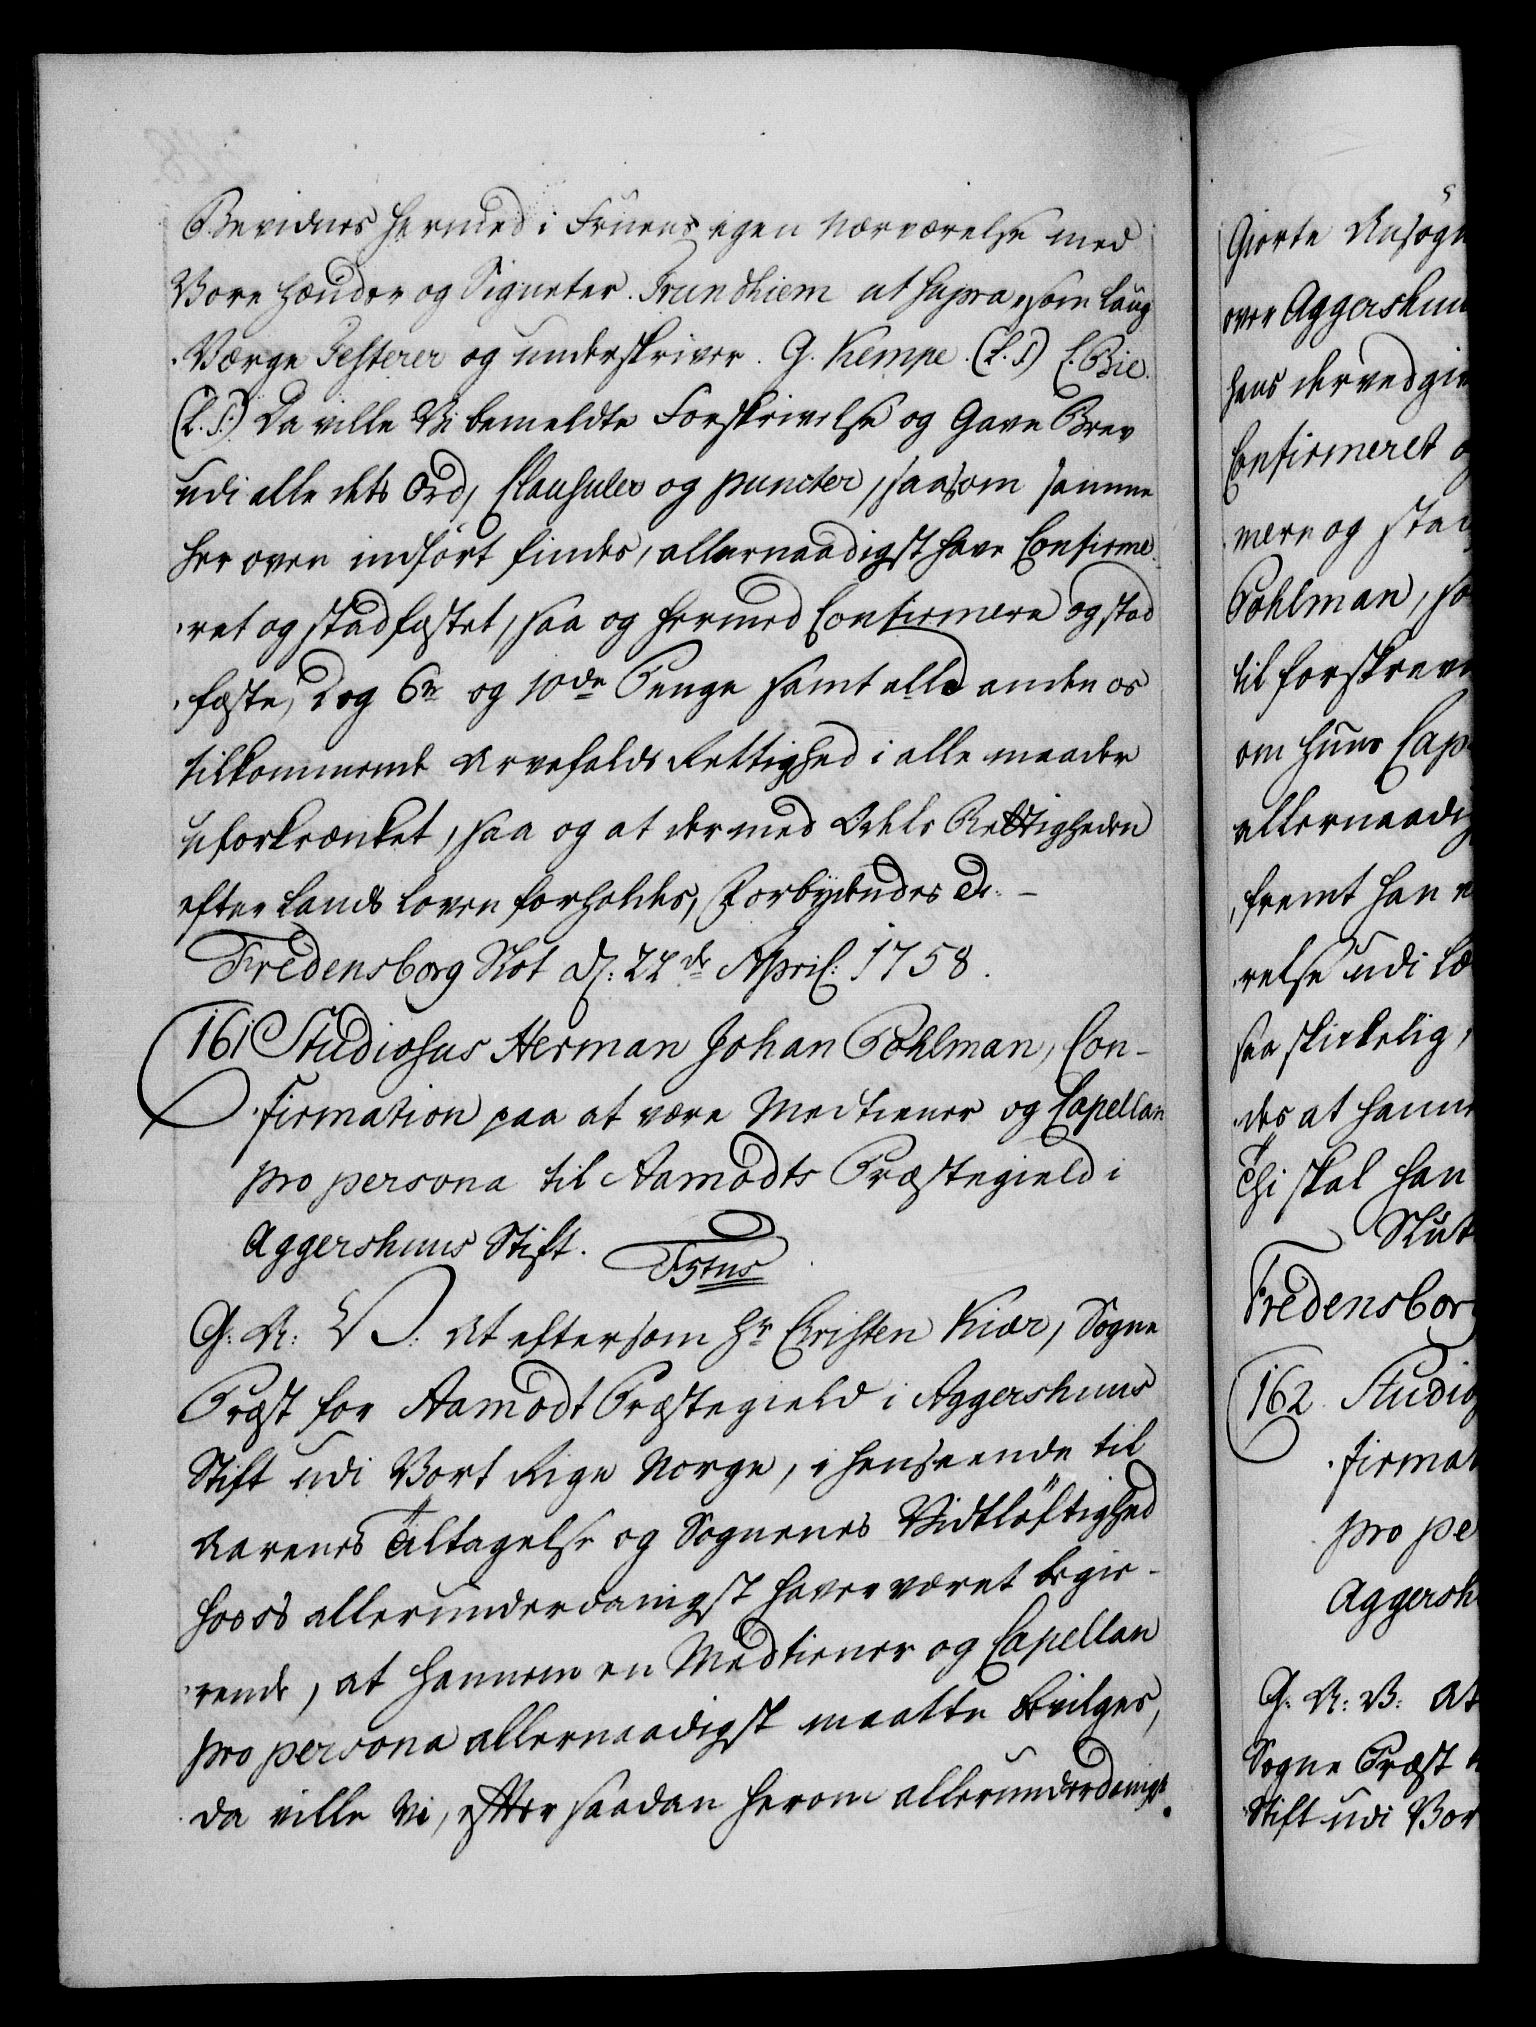 Bevidnes hermed i Fruens egen Nærværelse med
Vore Hænder og Signeter. Trundhiem ut supra, som laug
Værge Testerer og underskriver. G. Kempe. (L.S.) C. Bie.
(L.S.) Da ville Vi bemeldte Forskrivelse og Gave Brev
udi alle dets Ord, Clausuler og puncter, saasom samme
her oven indført findes, allernaadigst have Confirme
ret og stadfæstet, saa og hermed Confirmere og stad
fæste, Dog 6te og 10de Penge samt alle anden os
tilkommende Arvefalds Rettighed i alle maader
uforkrænket, saa og at dermed Odels Rettigheden
efter Lands Loven forholdes, Forbydendes etc. -
Fredensborg Slot d: 22de April: 1758.
161 Studiosus Herman Johan Pohlman, Con-
firmation paa at være Medtiener og Capellan
pro persona til Aamodts Præstegield i
Aggershuus Stift.
G: A: V: At eftersom Hr Christen Kiær, Sogne
Præst for Aamodt Præstegield i Aggershuus
Stift udi Vort Rige Norge, i henseende til
Aarenes Tiltagelse og Sognenes Vidtløftighed
hos os allerunderdanigst haver været begie-
rende, at hannem en Medtiener og Capellan
pro persona allernaadigst maatte bevilges,
da ville Vi, efter saadan herom allerunderdanigst
Giorte Ansøgn
over Aggershuu
hans derved giv
Confirmeret o
mere og stad
Pohlman, so
til forskreve
om hans Cap
allernaadig
fremt han
relse udi Læ
saa skikkelig,
des at hann
Thi skal han
Slut
Fredensbor
162. Studio
firmat
pro pe
Aggersh
G: A: V: At
Sogne Præst
Stift udi Vor